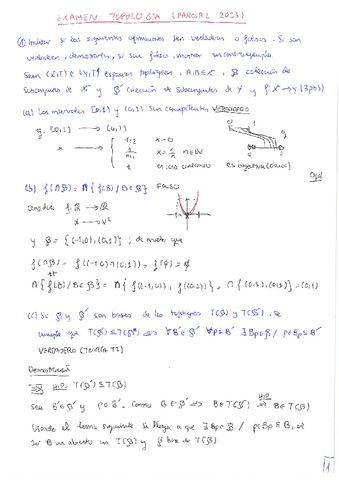 EXAMEN TOPOLOGIA (PARCIAL 2023)
① Indicar si las siguientes afirmaciones son verdaderas o falsas. Si son
verdaderas, demostrarlas, si son falsas, mostrar un contraejemplo.
Sean (X,T) e (Y,T') espacios topológicos, A,B⊆X, B colección de
subconjuntos de X y B' colección de subconjuntos de Y y f: X → Y (3pts)
(a) Los intervalos [0,1) y (0,1) son equipotentes VERDADERO
g: [0,1) → (0,1)
x → { 1/2 x=0
x = 1/n n∈ℕ
x en caso contrario es biyectiva
(b) f(∩B) = ∩{f(B) / B∈B} FALSO
f: ℝ → ℝ
x → x²
y B = {(-1,0), (0,1)}, de modo que
f(∩B) = f((-1,0)∩(0,1)) = f(∅) = ∅
∩{f(B) / B∈B} = ∩{f((-1,0)), f((0,1))} = ∩{(0,1), (0,1)} = (0,1)
(c) Si B y B' son bases de las topologías T(B) y T(B'), se
cumple que T(B') ⊆ T(B) ⟺ ∀B'∈B' ∀p∈B' ∃Bp∈B / p∈Bp⊆B'
VERDADERO (TEORICA T2)
Demostración
⟹ Hip: T(B') ⊆ T(B)
Sea B'∈B' y p∈B'. Como
Usando el lema siguiente se llega a que ∃Bp∈B / p∈Bp⊆B, al
ser B un abierto en T(B) y B base de T(B).
1